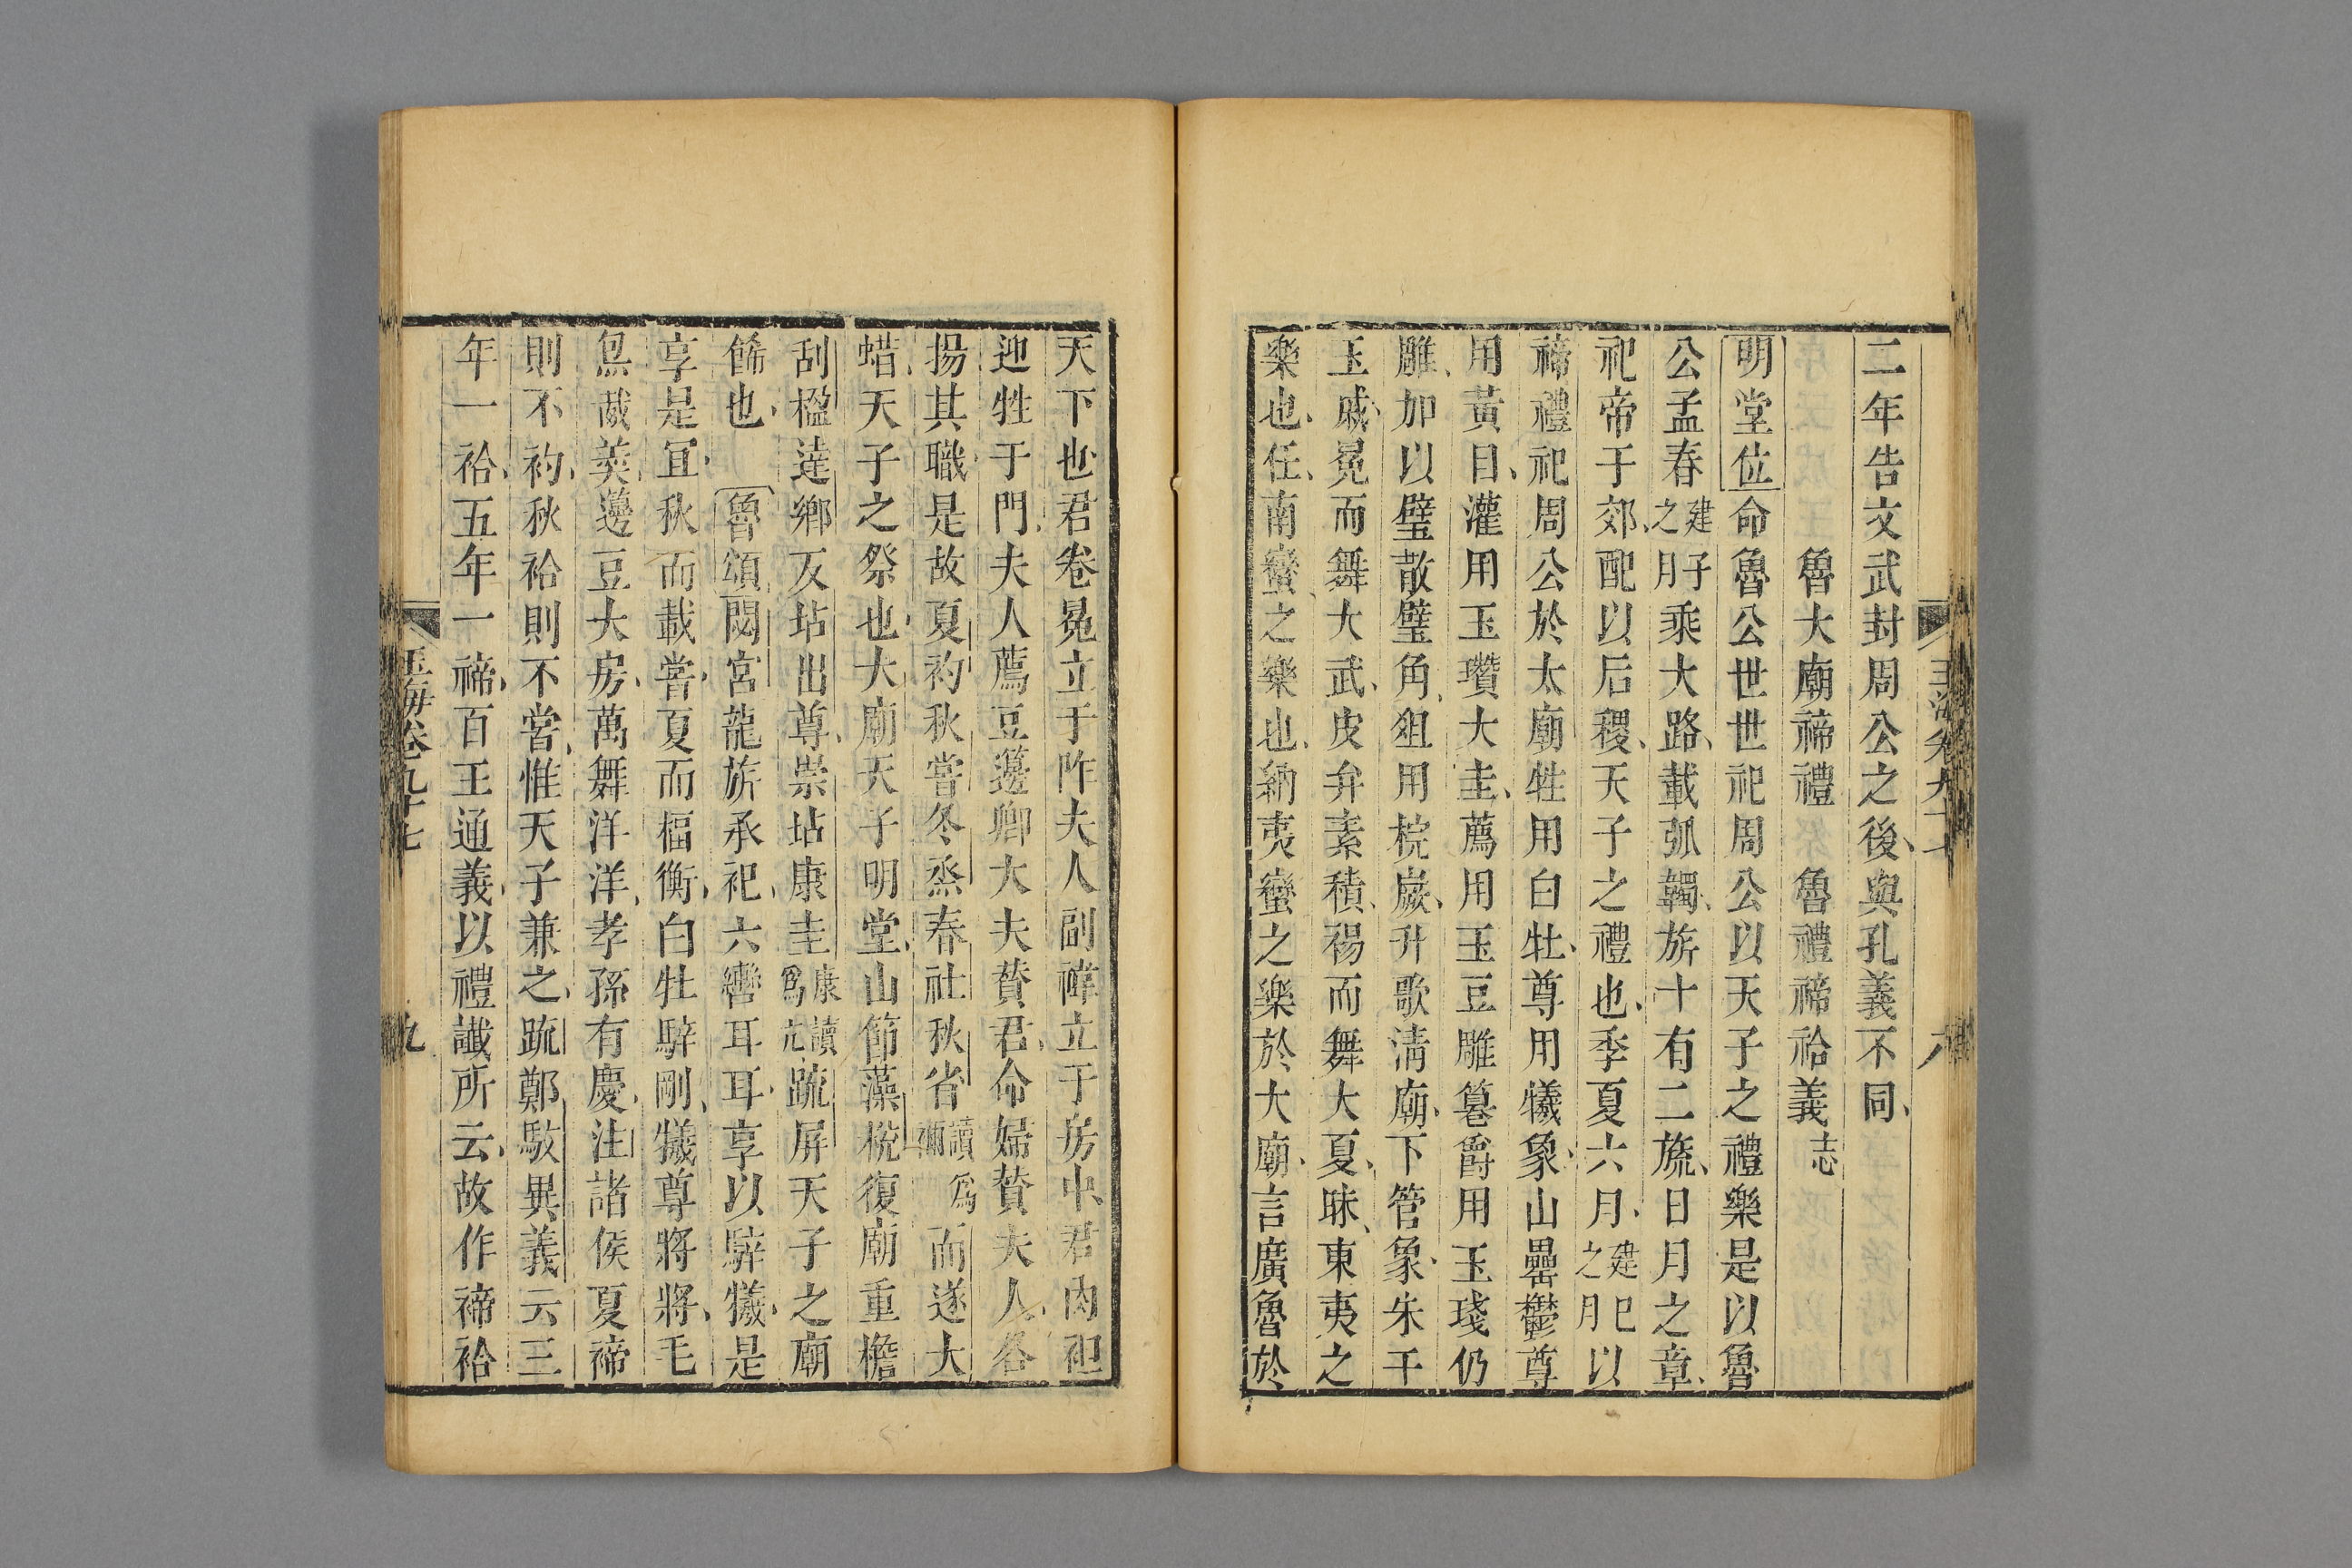 二年告文武封周公之後與孔義不同
魯大廟禘禮 魯禮禘祫義志
明堂位命魯公世世祀周公以天子之禮樂是以魯
公孟春建子之月乘大路載弧韣旂十有二旒日月之章
祀帝于郊配以后稷天子之禮也季夏六月建巳之月以
禘禮祀周公於太廟牲用白牡尊用犧象山罍鬱尊
用黃目灌用玉瓚大圭薦用玉豆雕篹爵用玉琖仍
雕加以璧散璧角俎用梡嶡升歌淸廟下管象朱干
玉戚冕而舞大武皮弁素積裼而舞大夏昧東夷之
樂也任南蠻之樂也納夷蠻之樂於大廟言廣魯於
天下也君卷冕立于阼夫人副褘立于房中君肉袒
迎牲于門夫人薦豆籩卿大夫賛君命婦賛夫人各
揚其職是故夏礿秋嘗冬烝春社秋省讀爲獮而遂大
蜡天子之祭也大廟天子明堂山節藻梲復廟重檐
刮楹達鄉反坫出尊崇坫康圭康讀爲亢疏屏天子之廟
飾也 魯頌閟宮龍旂承祀六轡耳耳享以騂犧是
享是宜秋而載嘗夏而楅衡白牡騂剛犧尊將將毛
炰胾羮籩豆大房萬舞洋洋孝孫有慶注諸侯夏禘
則不礿秋祫則不嘗惟天子兼之疏鄭駮異義云三
年一祫五年一禘百王通義以禮讖所云故作禘祫
玉海卷九十七 九